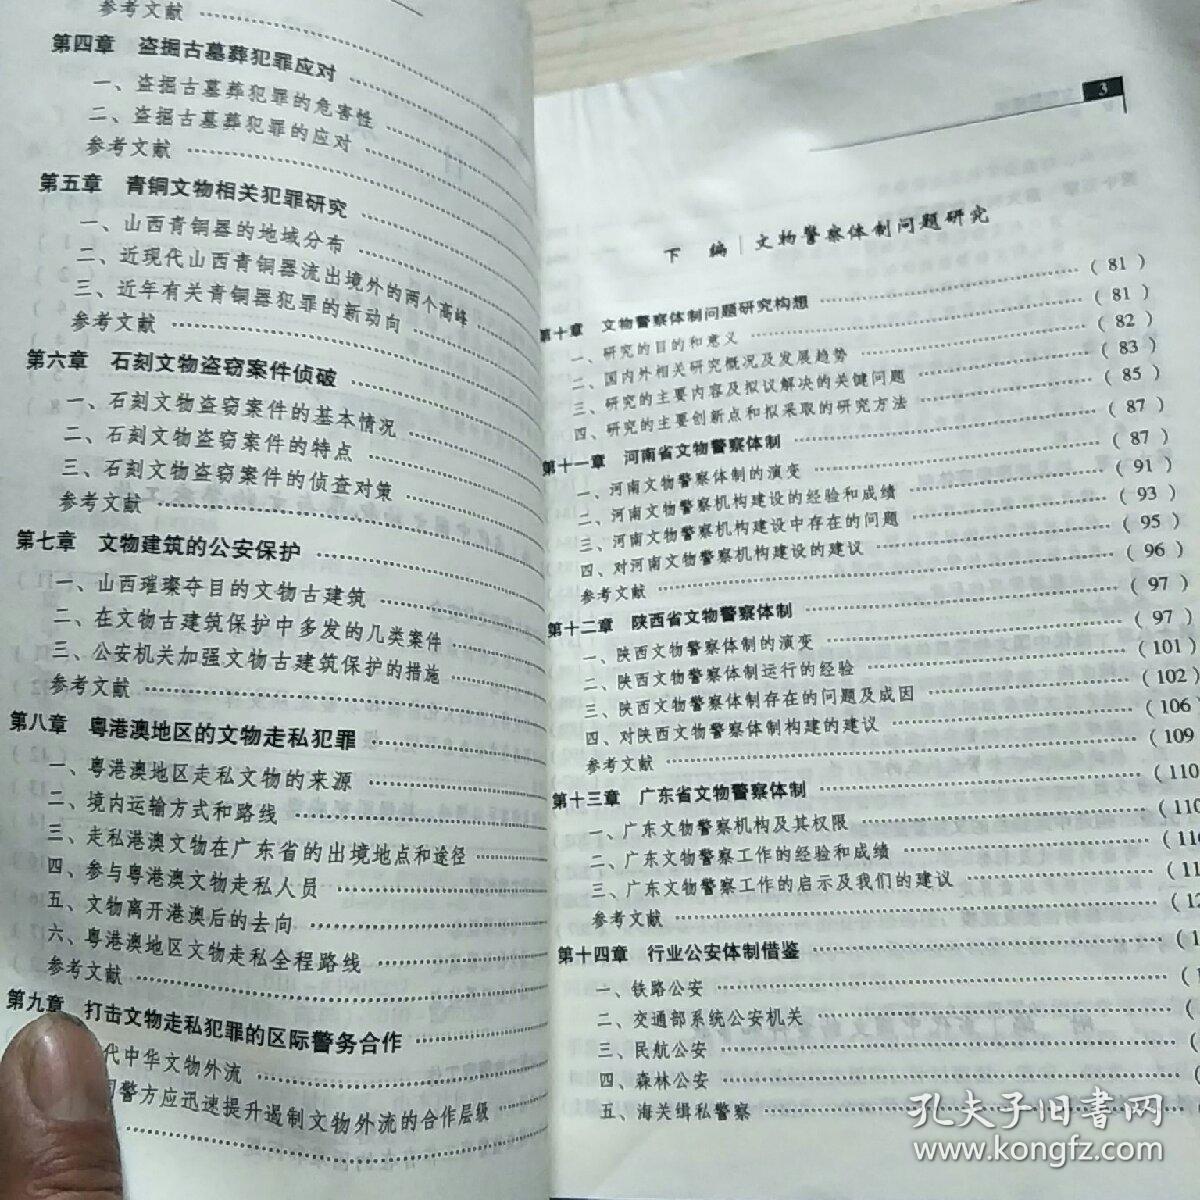 参考文献
第四章 盗掘古墓葬犯罪应对
一、盗掘古墓葬犯罪的危害性
二、盗掘古墓葬犯罪的应对
参考文献
第五章 青铜文物相关犯罪研究
一、山西青铜器的地域分布
二、近现代山西青铜器流出境外的两个高峰
三、近年有关青铜器犯罪的新动向
参考文献
第六章 石刻文物盗窃案件侦破
一、石刻文物盗窃案件的基本情况
二、石刻文物盗窃案件的特点
三、石刻文物盗窃案件的侦查对策
参考文献
第七章 文物建筑的公安保护
一、山西璀璨夺目的文物古建筑
二、在文物古建筑保护中多发的几类案件
三、公安机关加强文物古建筑保护的措施
参考文献
第八章 粤港澳地区的文物走私犯罪
一、粤港澳地区走私文物的来源
二、境内运输方式和路线
三、走私港澳文物在广东省的出境地点和途径
四、参与粤港澳文物走私人员
五、文物离开港澳后的去向
六、粤港澳地区文物走私全程路线
参考文献
第九章 打击文物走私犯罪的区际警务合作
代中华文物外流
警方应迅速提升遏制文物外流的合作层级
3
下 编 | 文物警察体制问题研究
第十章 文物警察体制问题研究构想 (81)
一、研究的目的和意义 (81)
二、国内外相关研究概况及发展趋势 (82)
三、研究的主要内容及拟议解决的关键问题 (83)
四、研究的主要创新点和拟采取的研究方法 (85)
第十一章 河南省文物警察体制 (87)
一、河南文物警察体制的演变 (87)
二、河南文物警察机构建设的经验和成绩 (91)
三、河南文物警察机构建设中存在的问题 (93)
四、对河南文物警察机构建设的建议 (95)
参考文献 (96)
第十二章 陕西省文物警察体制 (97)
一、陕西文物警察体制的演变 (97)
二、陕西文物警察体制运行的经验 (101)
三、陕西文物警察体制存在的问题及成因 (102)
四、对陕西文物警察体制构建的建议 (106)
参考文献 (109
第十三章 广东省文物警察体制 (110
一、广东文物警察机构及其权限 (110
二、广东文物警察工作的经验和成绩 (11
三、广东文物警察工作的启示及我们的建议 (11
参考文献 (12
第十四章 行业公安体制借鉴 (1
一、铁路公安 (1
二、交通部系统公安机关 (
三、民航公安 (
四、森林公安 (
五、海关缉私警察 (
孔夫子旧书网
www.kongfz.com